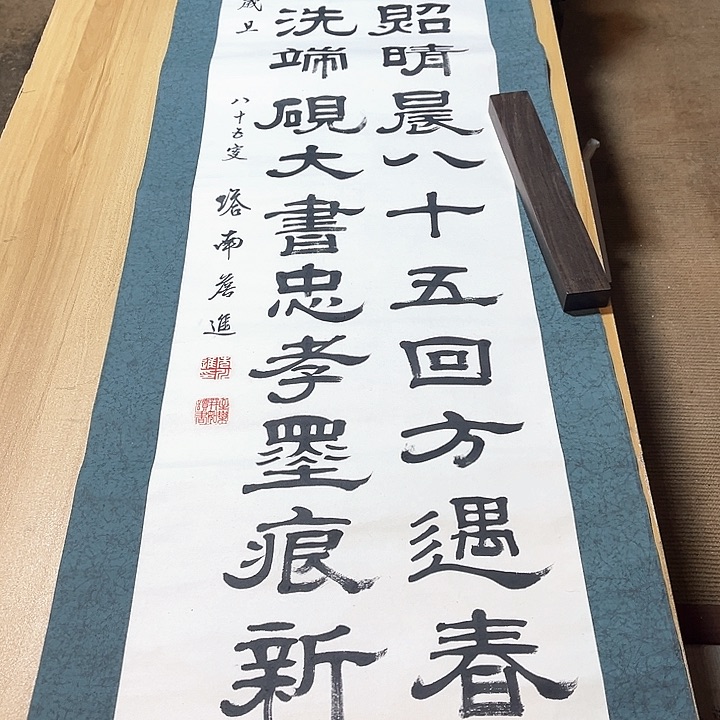 晴晨八十五回方遇春
洗端硯大書忠孝墨痕新
歲旦
八十五叟 塔南 蔡進